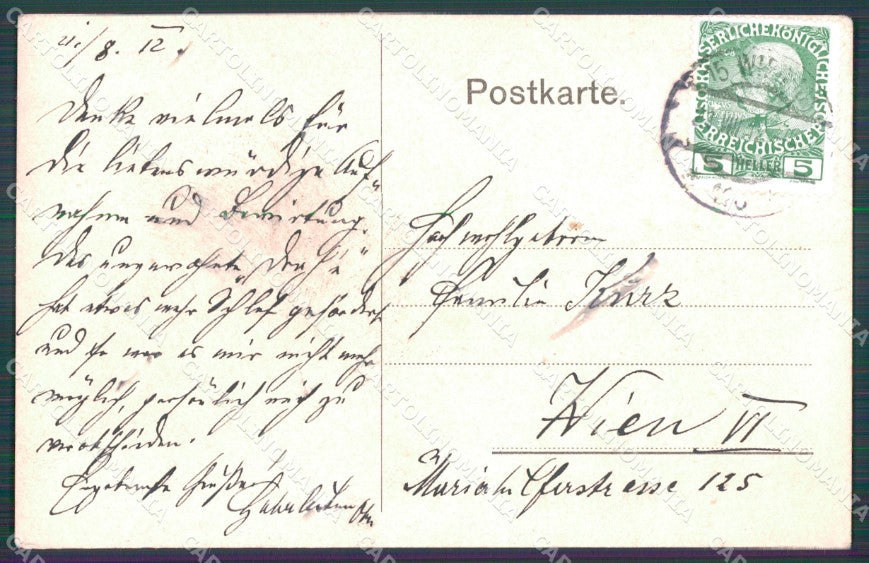 21/8. 12.
Danke vielmals für
die liebenswürdige Auf-
nahme und Bewirtung.
Das ungewohnte
hat etwas mehr Schlaf gefordert
und so war es mir nicht mehr
möglich, persönlich mich zu
verabschieden.
Ergebenste Grüße
Postkarte.
15 WIEN
KAISERLICHE KÖNIGLICHE
ÖSTERREICHISCHE POST
5 HELLER 5
Hochwohlgeboren
Familie Kurz
Wien VI
Mariahilferstrasse 125
CARTOLINOMANIA